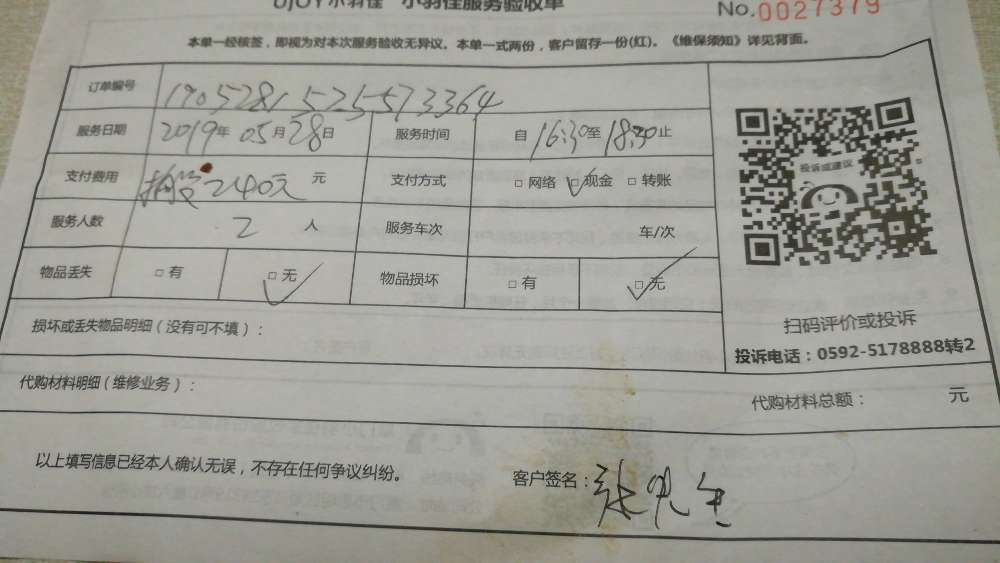 UJOY小羽佳 小羽佳服务验收单
No.0027379
本单一经核签，即视为对本次服务验收无异议。本单一式两份，客户留存一份(红)。《维保须知》详见背面。
订单编号 190528152557​3364
服务日期 2019年05月28日 服务时间 自16:30至18:30止
支付费用 240元 元 支付方式 □网络 □现金 □转账
服务人数 2 人 服务车次 车/次
物品丢失 □有 □无 物品损坏 □有 □无
投诉或建议
扫码评价或投诉
投诉电话：0592-5178888转2
损坏或丢失物品明细（没有可不填）：
代购材料明细（维修业务）：
代购材料总额： 元
以上填写信息已经本人确认无误，不存在任何争议纠纷。
客户签名：张先生